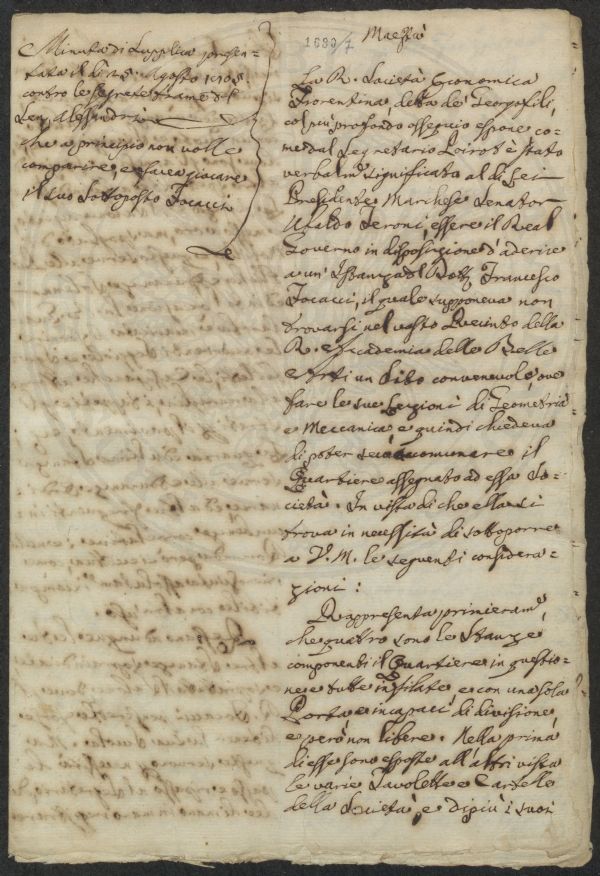 Minuta di Supplica presen-
tata il dì 25. Agosto 1808.
contro le segrete trame del
Sen. Alessandri
che a principio non volle
comparire, e facea giocare
il suo sottoposto Focacci
1680/7
Maestà
La R. Società Economica
Fiorentina, detta de' Georgofili,
col più profondo ossequio espone co-
me dal Segretario Loirot è stato
verbalm.e significato al di Lei
Presidente Marchese Senator
Ubaldo Feroni, essere il Real
Governo in disposizione d'aderire
a un' Istanza del Dott. Francesco
Focacci, il quale supponeva non
trovarsi nel vasto Recinto della
R. Accademia delle Belle
Arti un sito convenevole, ove
fare le sue Lezioni di Geometria
e Meccanica e quindi chiedeva
di poter accomunare il
Quartiere assegnato ad essa So-
cietà. In vista di che ella si
trova in necessità di sottoporre
a V. M. le seguenti considera-
zioni:
Rappresenta primieram.e
che quattro sono le Stanze
componenti il Quartiere in questio-
ne e tutte infilate, e con una sola
Porta e incapaci di divisione,
e però non libere. Nella prima
di esse sono esposte all'altrui vista
le varie Tavolette e Cartelle
della Società, e di più i suoi